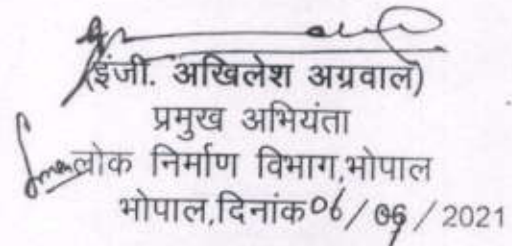 (इंजी. अखिलेश अग्रवाल)
प्रमुख अभियंता
लोक निर्माण विभाग,भोपाल
भोपाल,दिनांक 06/ / 2021